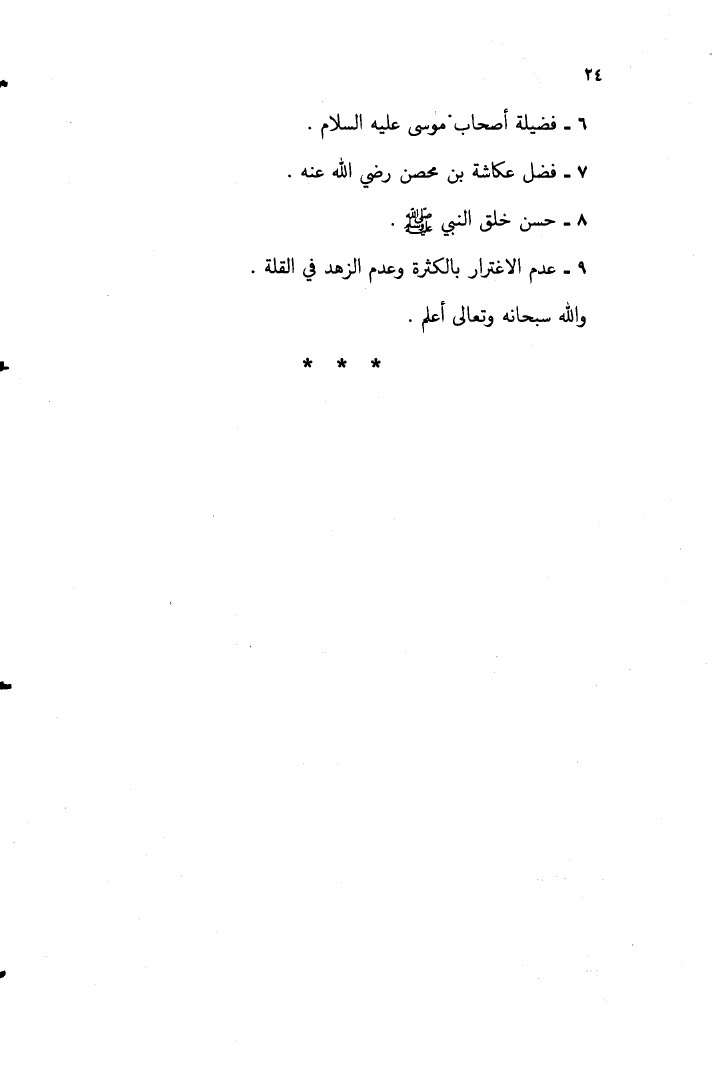 ٢٤
٦ ـ فضيلة أصحاب موسى عليه السلام .
٧ ـ فضل عكاشة بن محصن رضي الله عنه .
٨ ـ حسن خلق النبي ﷺ .
٩ ـ عدم الاغترار بالكثرة وعدم الزهد في القلة .
والله سبحانه وتعالى أعلم .
* * *